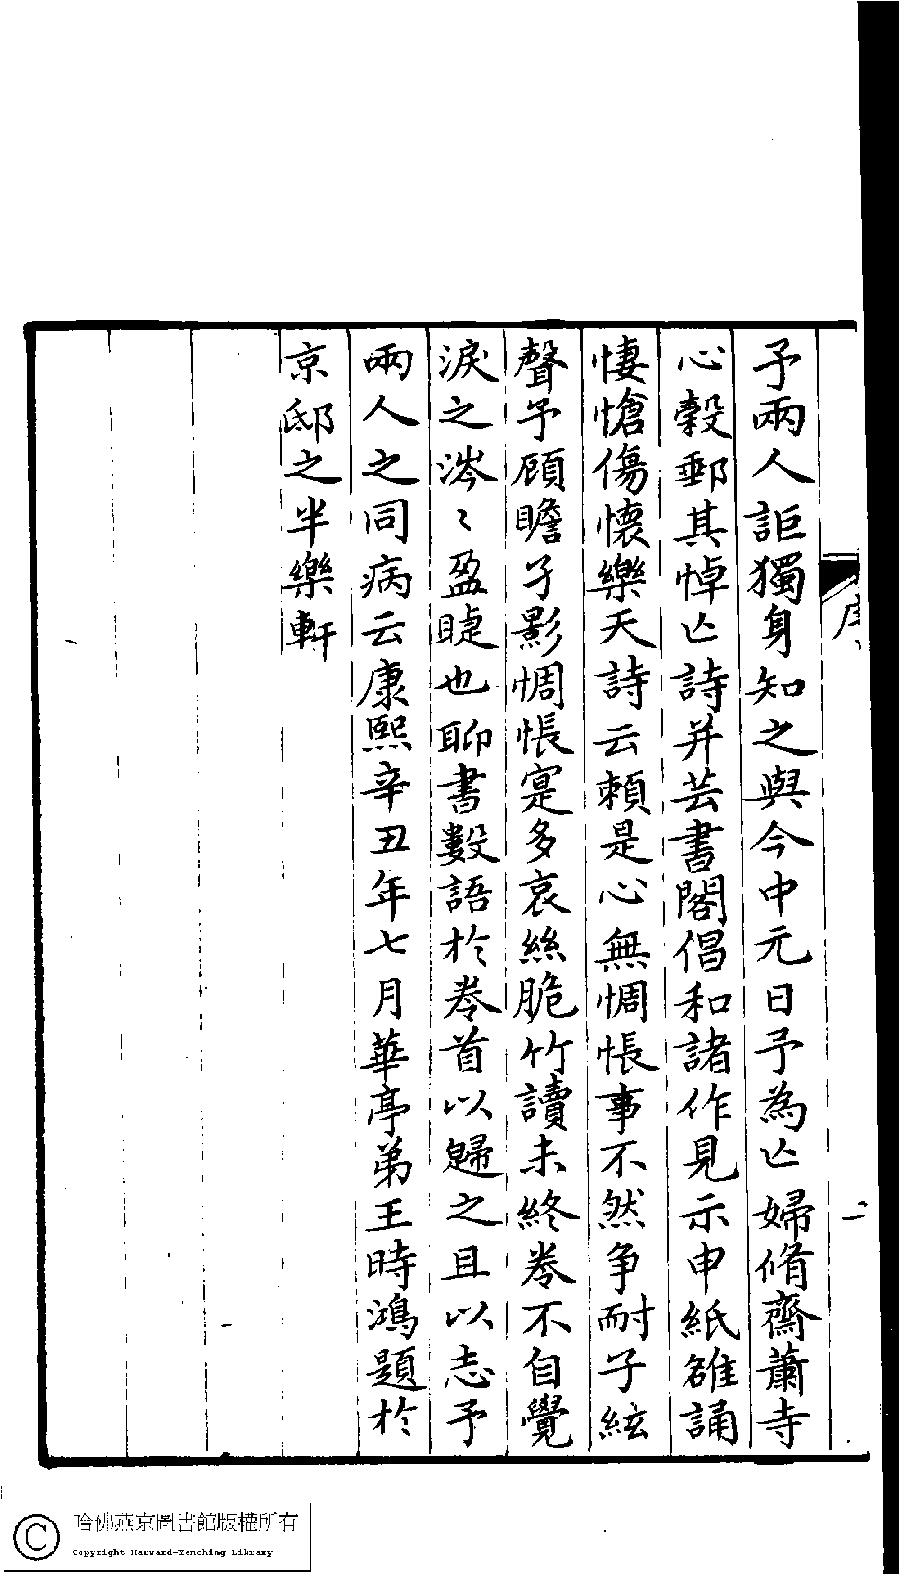 予兩人詎獨身知之與今中元日予為亡婦脩齋蕭寺
心糓郵其悼亡詩并芸書閣倡和諸作見示申紙雒誦
悽愴傷懷樂天詩云賴是心無惆悵事不然争耐子絃
聲予顧瞻孑影惆悵寔多哀絲脆竹讀未終卷不自覺
淚之涔〻盈睫也聊書數語於卷首以歸之且以志予
兩人之同病云康熙辛丑年七月華亭弟王時鴻題於
京邸之半樂軒
序
二
哈佛燕京圖書館版權所有
Copyright Harvard-Yenching Library